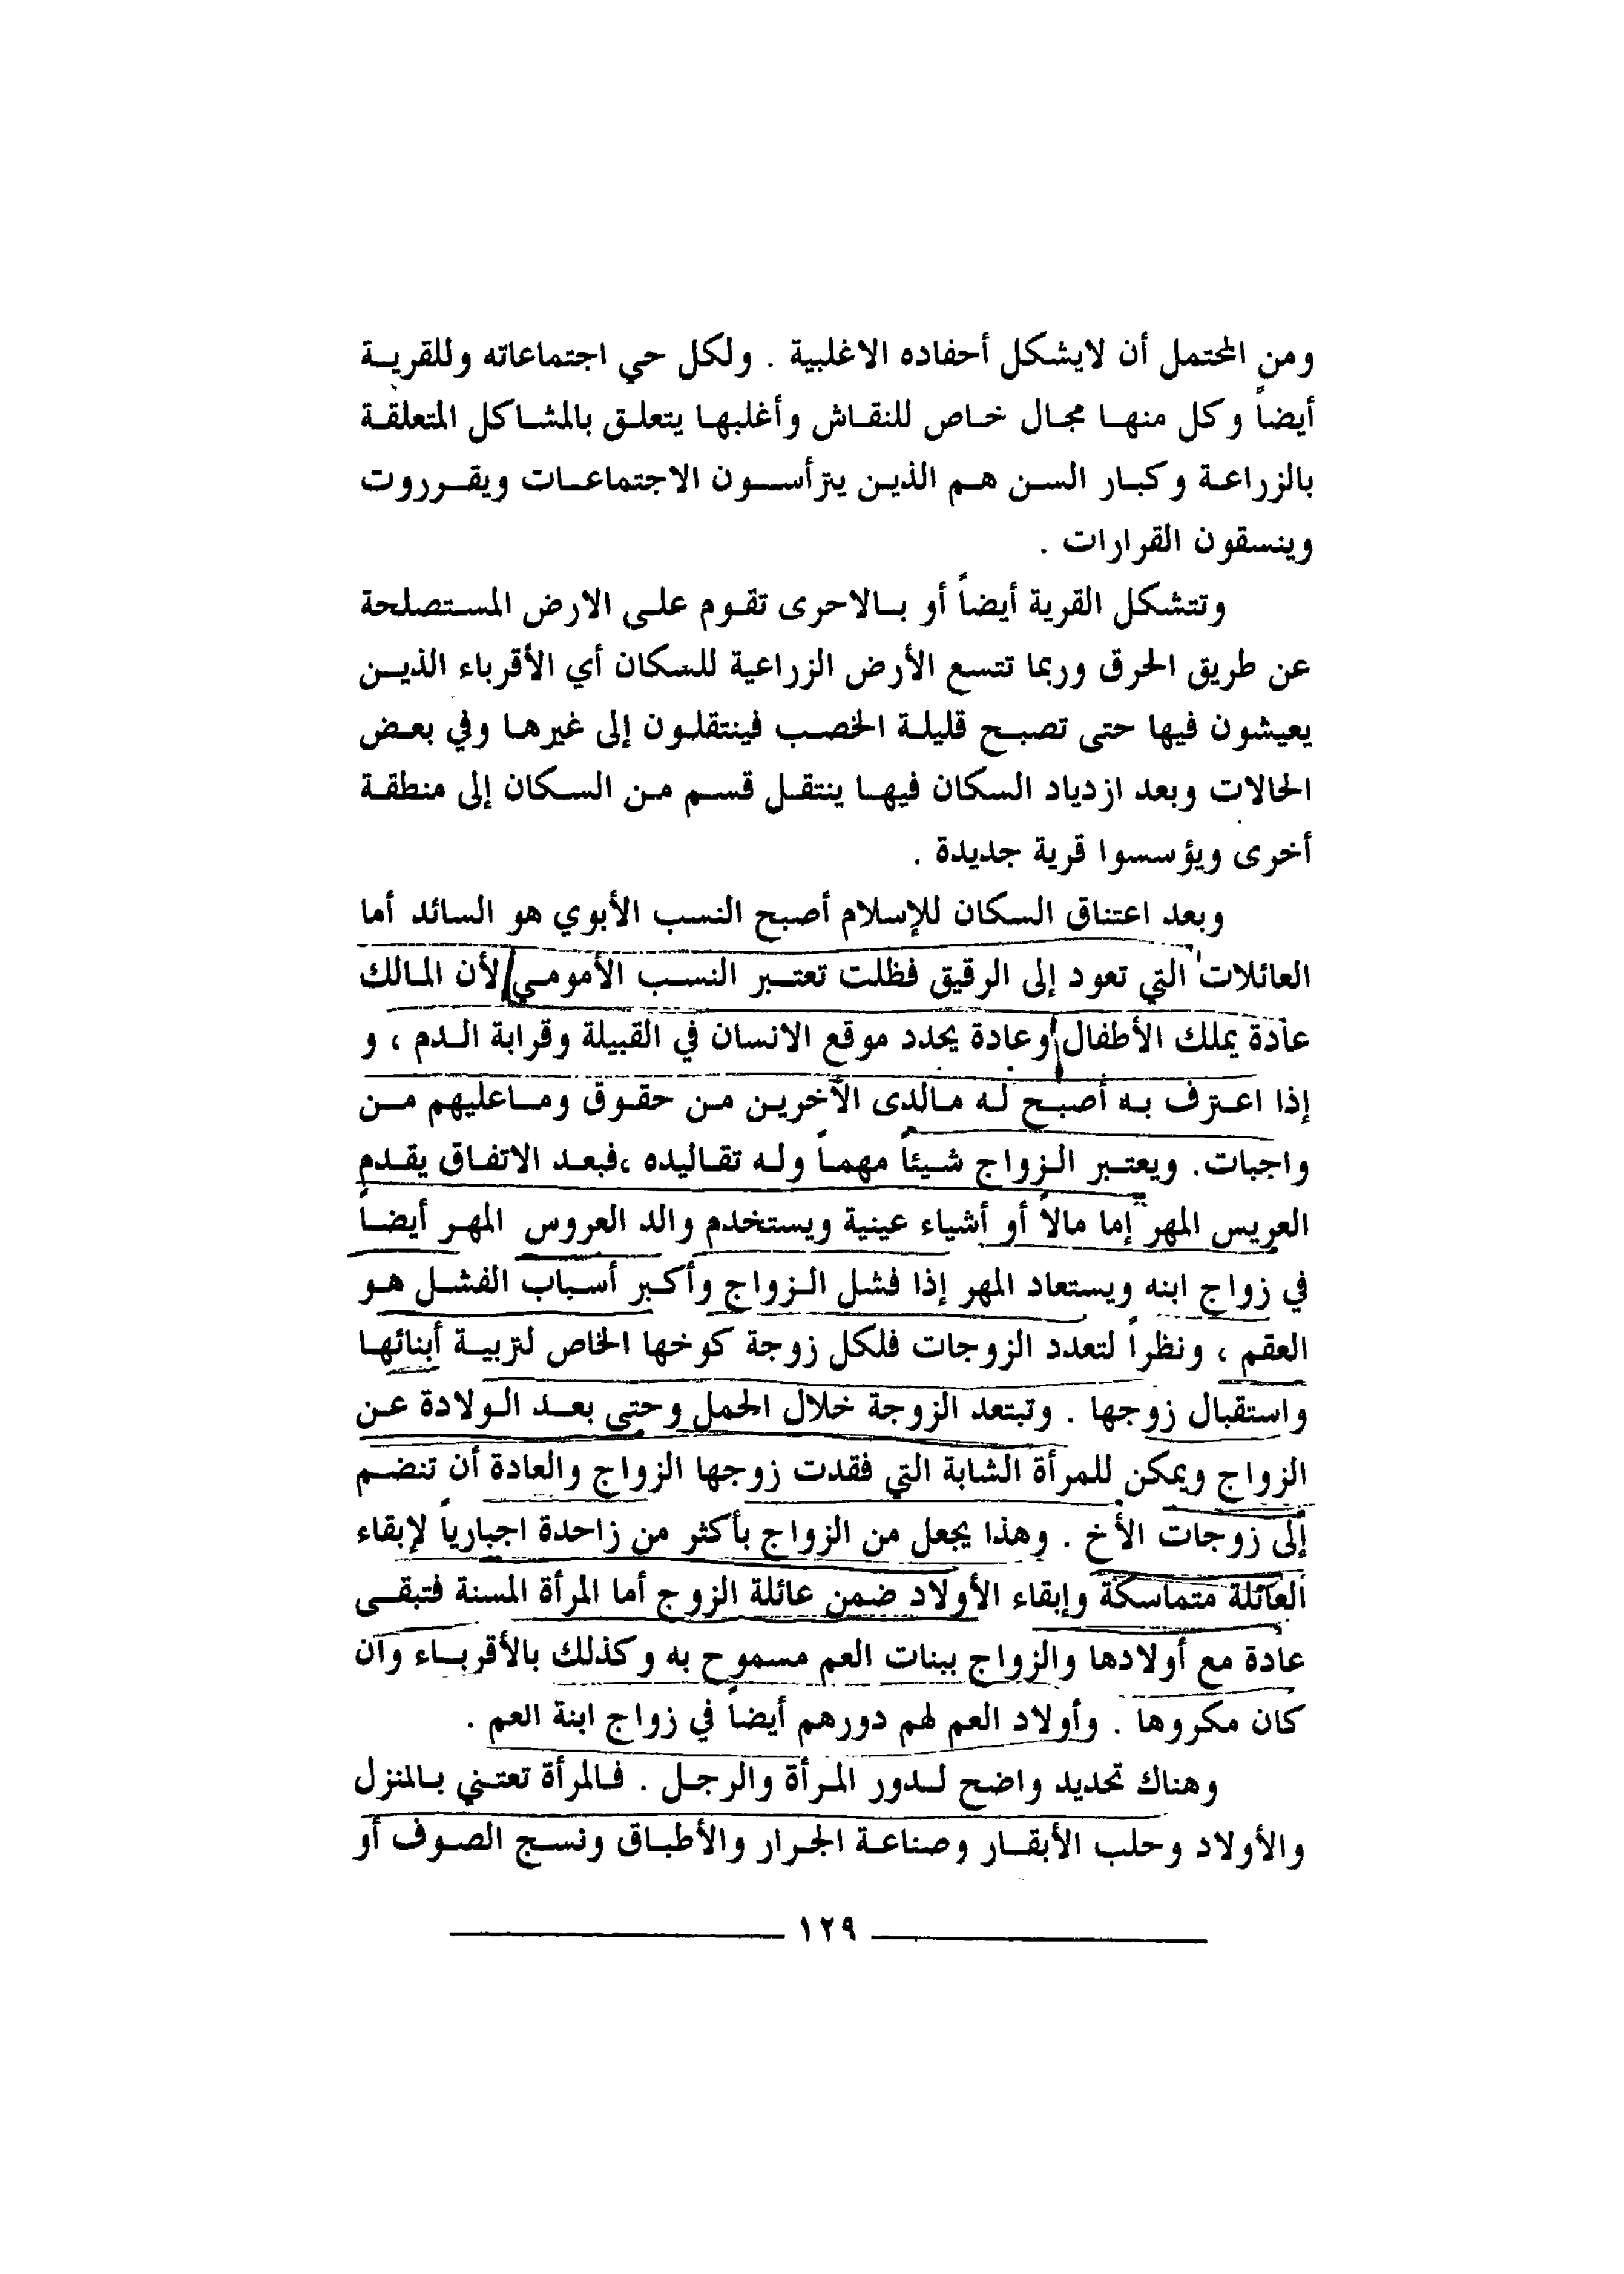 ومن المحتمل أن لايشكل أحفاده الاغلبية . ولكل حي اجتماعاته وللقرية
أيضاً وكل منها مجال خاص للنقاش وأغلبها يتعلق بالمشاكل المتعلقة
بالزراعة وكبار السن هم الذين يترأسون الاجتماعات ويقرروت
وينسقون القرارات .
وتتشكل القرية أيضاً أو بالاحرى تقوم على الارض المستصلحة
عن طريق الحرق وربما تتسع الأرض الزراعية للسكان أي الأقرباء الذين
يعيشون فيها حتى تصبح قليلة الخصب فينتقلون إلى غيرها وفي بعض
الحالات وبعد ازدياد السكان فيها ينتقل قسم من السكان إلى منطقة
أخرى ويؤسسوا قرية جديدة .
وبعد اعتناق السكان للإسلام أصبح النسب الأبوي هو السائد أما
العائلات التي تعود إلى الرقيق فظلت تعتبر النسب الأمومي لأن المالك
عادة يملك الأطفال وعادة يحدد موقع الانسان في القبيلة وقرابة الدم ، و
إذا اعترف به أصبح له مالدى الآخرين من حقوق وماعليهم من
واجبات. ويعتبر الزواج شيئاً مهماً وله تقاليده ،فبعد الاتفاق يقدم
العريس المهر إما مالاً أو أشياء عينية ويستخدم والد العروس المهر أيضاً
في زواج ابنه ويستعاد المهر إذا فشل الزواج وأكبر أسباب الفشل هو
العقم ، ونظراً لتعدد الزوجات فلكل زوجة كوخها الخاص لتربية أبنائها
واستقبال زوجها . وتبتعد الزوجة خلال الحمل وحتى بعد الولادة عن
الزواج ويمكن للمرأة الشابة التي فقدت زوجها الزواج والعادة أن تنضم
إلى زوجات الأخ . وهذا يجعل من الزواج بأكثر من زاحدة اجبارياً لإبقاء
العائلة متماسكة وإبقاء الأولاد ضمن عائلة الزوج أما المرأة المسنة فتبقى
عادة مع أولادها والزواج ببنات العم مسموح به وكذلك بالأقرباء وان
كان مكروها . وأولاد العم لهم دورهم أيضاً في زواج ابنة العم .
وهناك تحديد واضح لدور المرأة والرجل . فالمرأة تعتني بالمنزل
والأولاد وحلب الأبقار وصناعة الجرار والأطباق ونسج الصوف أو
١٢٩